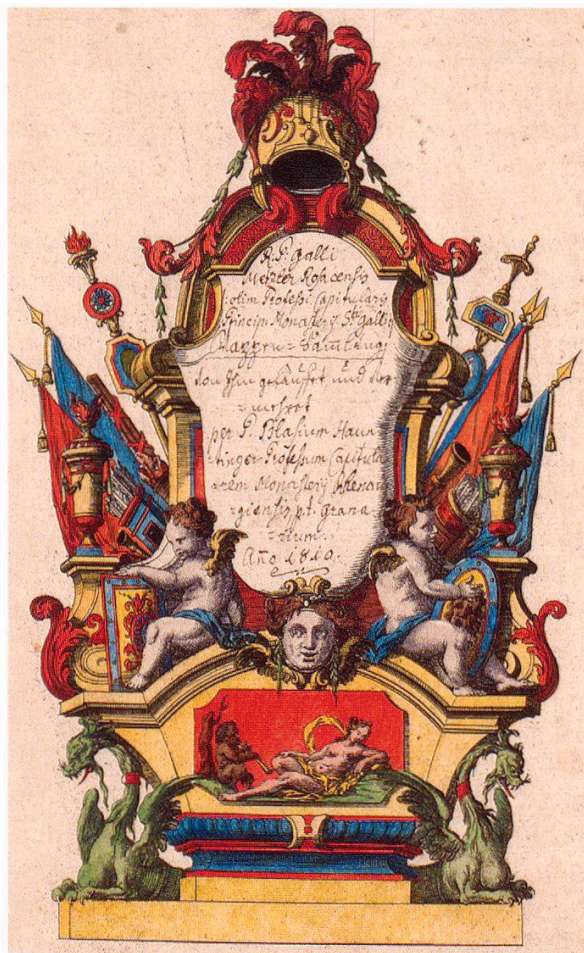 R. P. Galli
Metzler Rosacensis
olim Professi Capitularis
Princip. Monastery S. Galli
Wappen-Sammlung
von Ihm gekauffet und ver-
-mehret
per P. Blasium Haun-
tinger Professum Capitula-
-rem Monastery Rhenau-
-giensis p.t. Grana-
-rium.
Año 1810.